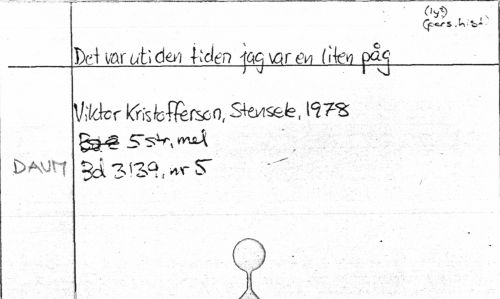 (lyr)
(pers.hist)
Det var uti den tiden jag var en liten påg
Viktor Kristofferson, Stensele, 1978
5 str, mel
DAUM Bd 3139, nr 5